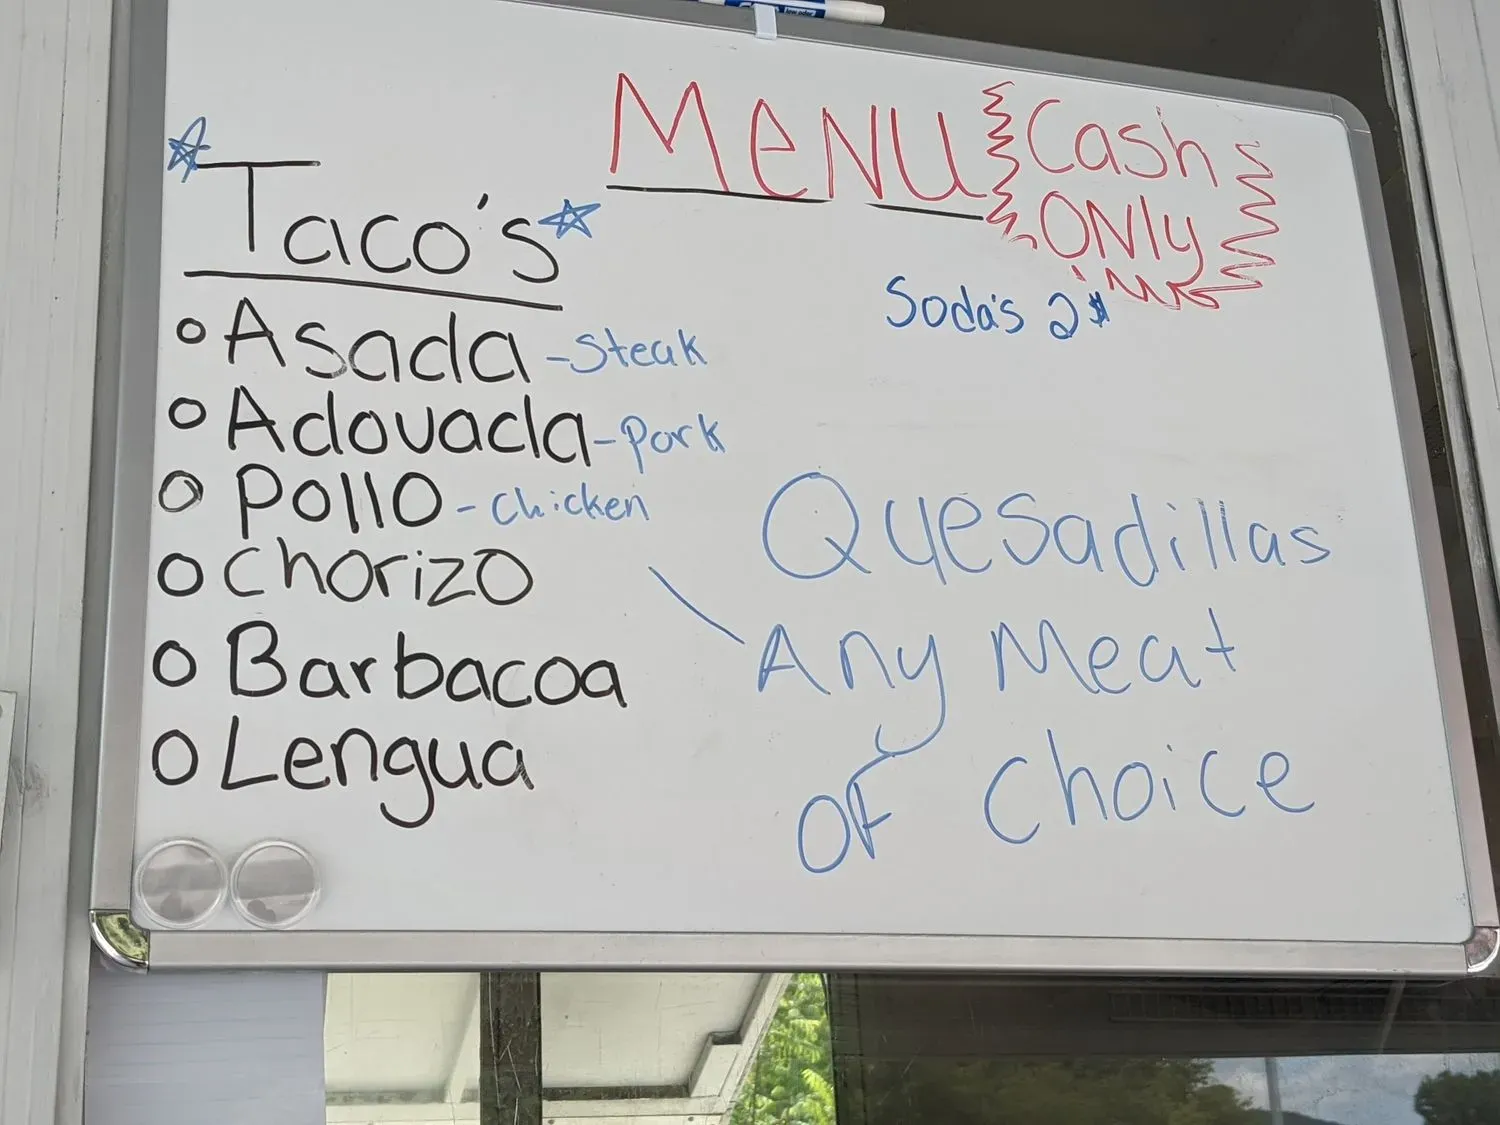 Menu
Cash
Only
Taco's
Soda's 2$
Asada - Steak
Adovada - pork
Pollo - chicken
Chorizo
Barbacoa
Lengua
Quesadillas
Any Meat
OF choice
low odor